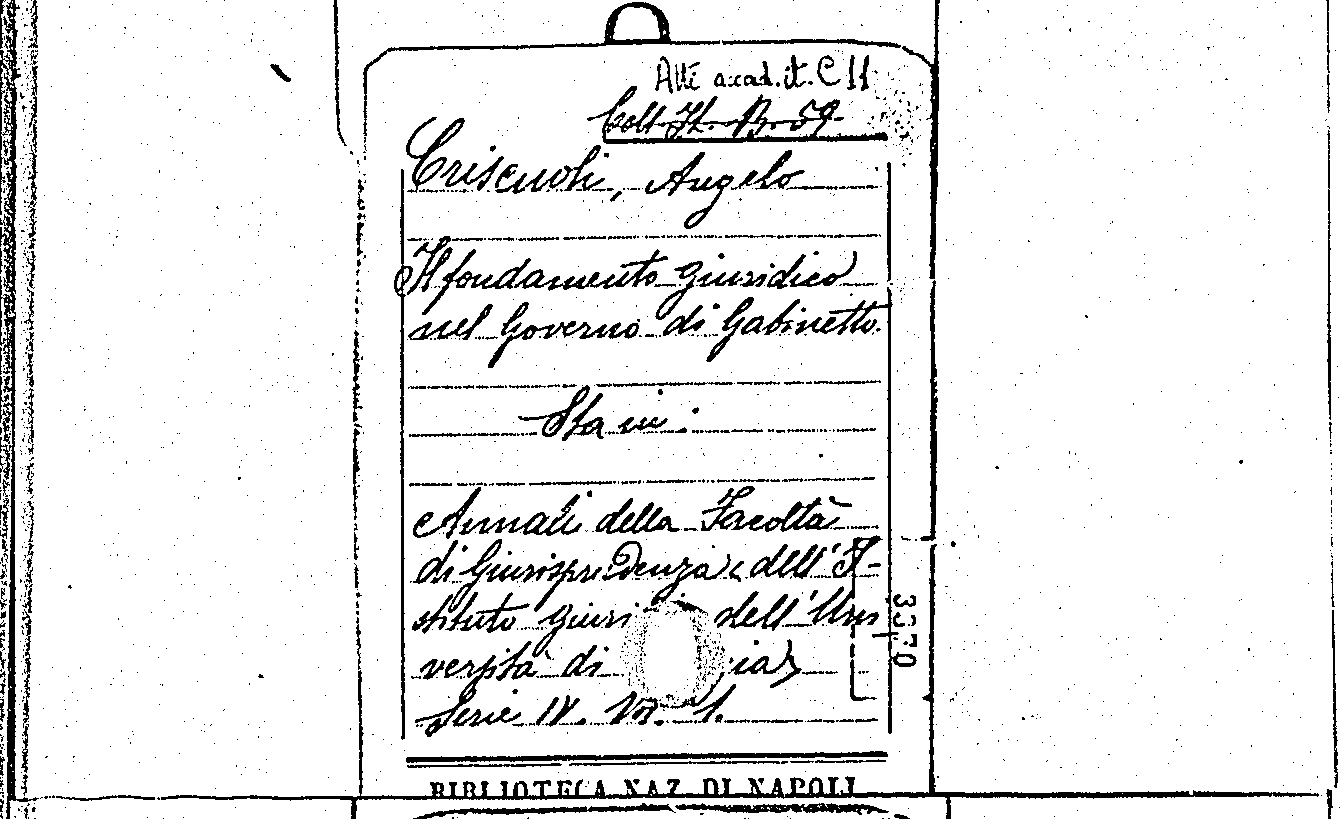 Atti accad. it. C 11
Coll. It. B. 59
Criscuoli, Angelo
Il fondamento giuridico
nel Governo di Gabinetto.
Sta in:
Annali della Facoltà
di Giurisprudenza dell' I-
stituto giuri dell' Uni
versità di
Serie IV. Vol. 1.
3370
BIBLIOTECA NAZ. DI NAPOLI